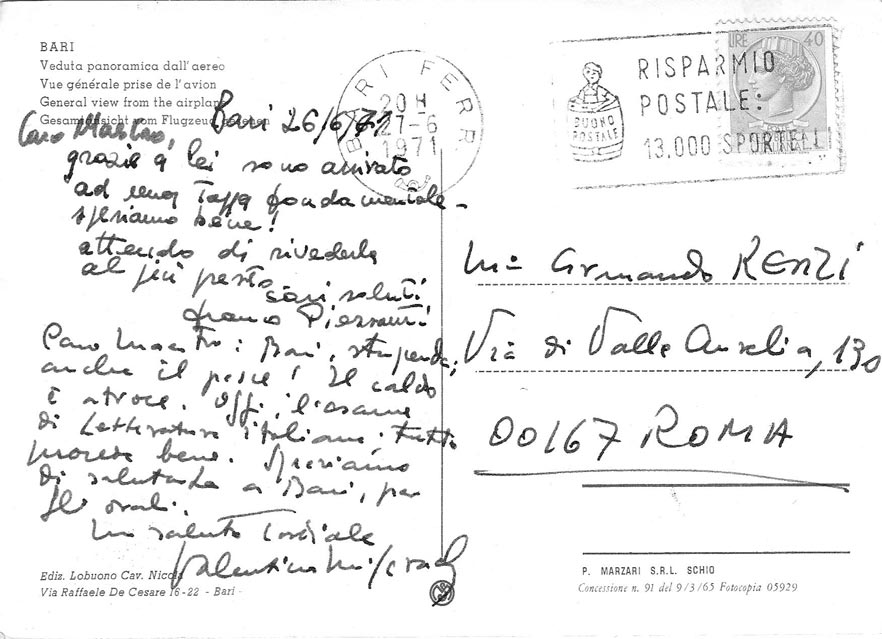 BARI
Veduta panoramica dall'aereo
Vue générale prise de l'avion
General view from the airplane
Gesamtansicht vom Flugzeug gesehen
Bari 26/6/71
Caro Maestro,
grazie a lei sono arrivato
ad una Tappa fondamentale -
speriamo bene!
attendo di rivederla
al più presto
cari saluti
Franco Piersanti
Caro Maestro: Bari, stupenda;
anche il pesce! Il caldo
è atroce. Oggi, l'esame
di Letteratura italiana. tutto
procede bene. Speriamo
di salutarla a Bari, per
gli orali.
Un saluto Cordiale
Valentino
Ediz. Lobuono Cav. Nicola
Via Raffaele De Cesare 16-22 - Bari -
BARI FERR
20 H
27-6
1971
RISPARMIO
POSTALE:
13.000 SPORTELLI
BUONO
POSTALE
LIRE 40
Armando RENZI
Via di Valle Aurelia, 130
00167 ROMA
P. MARZARI S.R.L. SCHIO
Concessione n. 91 del 9/3/65 Fotocopia 05929